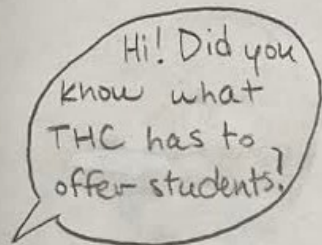 Hi! Did you
know what
THC has to
offer students?